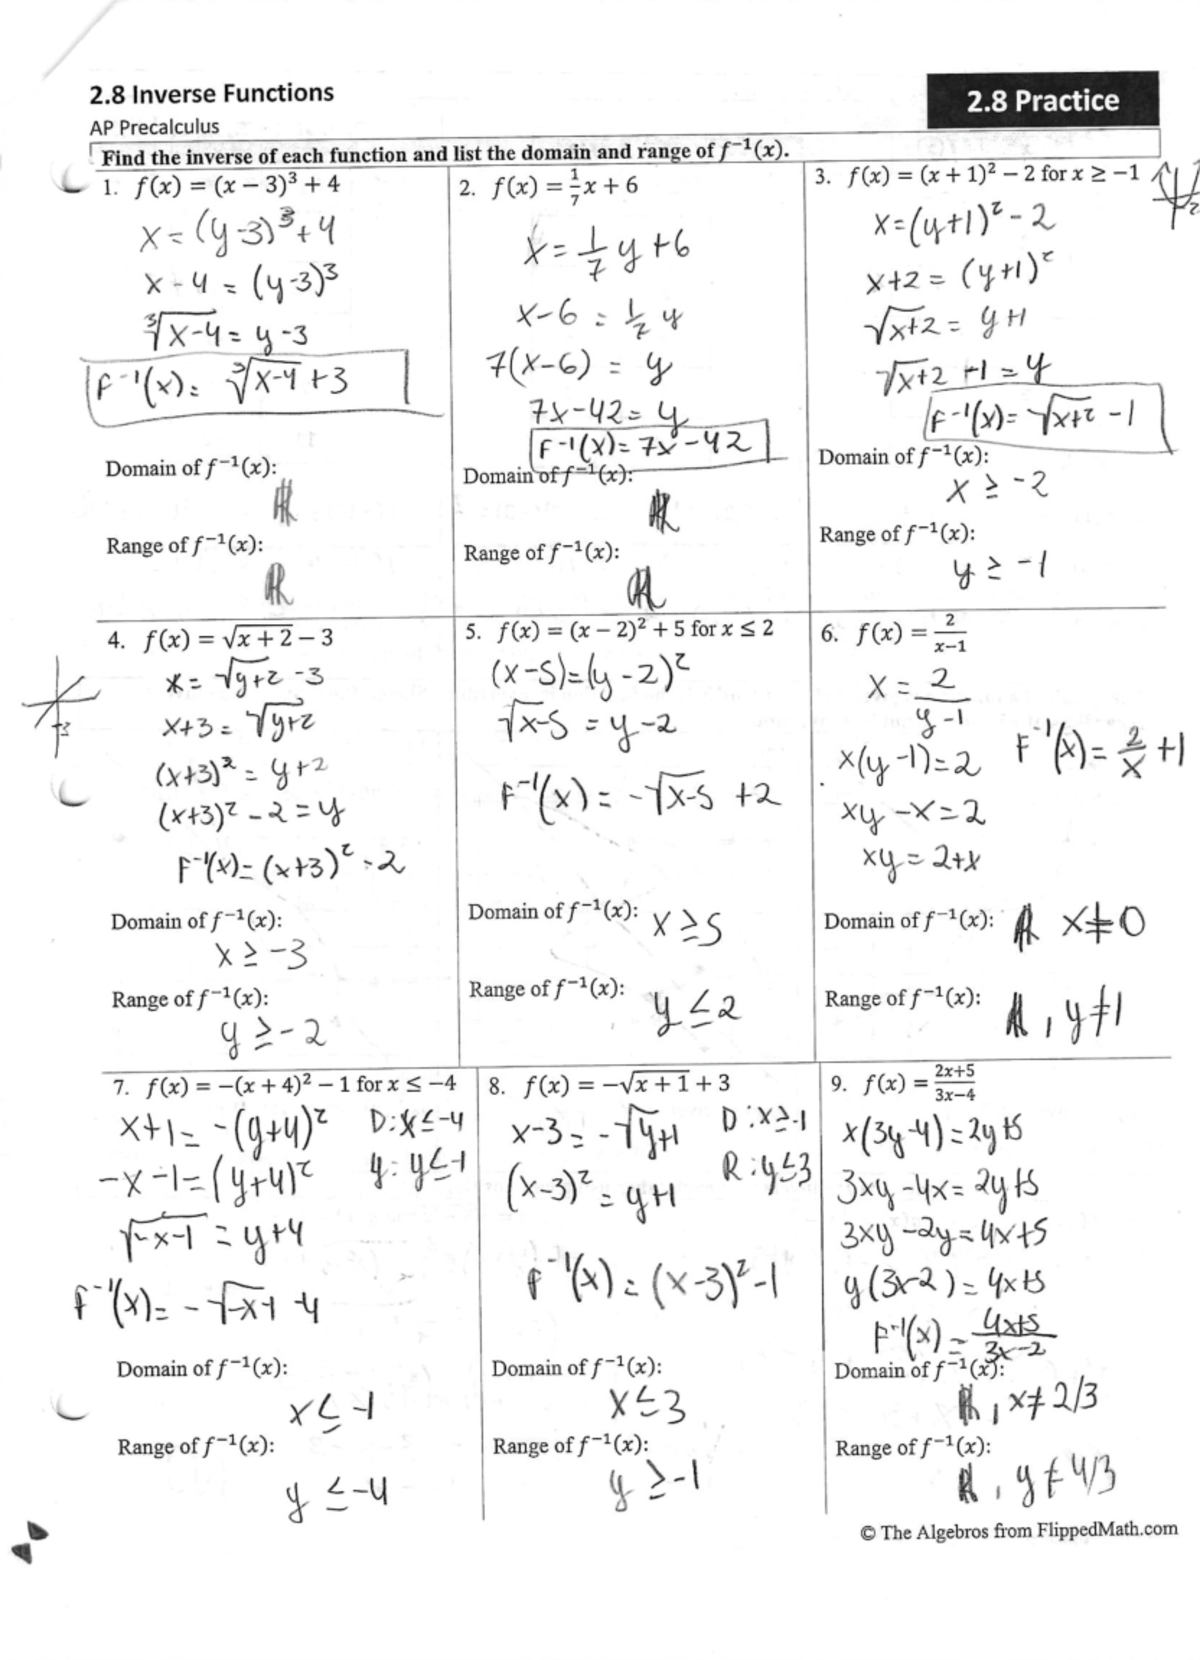 2.8 Inverse Functions
2.8 Practice
AP Precalculus
Find the inverse of each function and list the domain and range of f⁻¹(x).
1. f(x) = (x − 3)³ + 4
x = (y-3)³+4
x-4 = (y-3)³
∛x-4 = y-3
F⁻¹(x) = ∛x-4 +3
Domain of f⁻¹(x):
ℝ
Range of f⁻¹(x):
ℝ
2. f(x) = 1/7 x + 6
x = 1/7 y +6
x-6 = 1/7 y
7(x-6) = y
7x-42 = y
F⁻¹(x) = 7x-42
Domain of f⁻¹(x):
ℝ
Range of f⁻¹(x):
ℝ
3. f(x) = (x + 1)² − 2 for x ≥ −1
x=(y+1)²-2
x+2 = (y+1)²
√x+2 = y+1
√x+2 +1 = y
F⁻¹(x) = √x+2 -1
Domain of f⁻¹(x):
x ≥ -2
Range of f⁻¹(x):
y ≥ -1
4. f(x) = √x + 2 − 3
x = √y+2 -3
x+3 = √y+2
(x+3)² = y+2
(x+3)² -2 = y
F⁻¹(x) = (x+3)² -2
-3
Domain of f⁻¹(x):
x ≥ -3
Range of f⁻¹(x):
y ≥ -2
5. f(x) = (x − 2)² + 5 for x ≤ 2
(x-5)=(y-2)²
√x-5 = y-2
F⁻¹(x) = -√x-5 +2
Domain of f⁻¹(x): x ≥ 5
Range of f⁻¹(x): y ≤ 2
6. f(x) = 2/x−1
x = 2/y-1
x(y-1)=2
F⁻¹(x) = 2/x +1
xy-x=2
xy = 2+x
Domain of f⁻¹(x): ℝ x≠0
Range of f⁻¹(x): ℝ, y≠1
7. f(x) = −(x + 4)² − 1 for x ≤ −4
x+1 = -(y+4)² D: x≤-4
-x-1 = (y+4)² y: y≤-1
√-x-1 = y+4
f⁻¹(x) = -√-x-1 -4
Domain of f⁻¹(x):
x ≤ -1
Range of f⁻¹(x):
y ≤ -4
8. f(x) = −√x + 1 + 3
x-3 = -√y+1 D: x≥-1
(x-3)² = y+1 R: y≤3
f⁻¹(x) = (x-3)²-1
Domain of f⁻¹(x):
x ≤ 3
Range of f⁻¹(x):
y ≥ -1
9. f(x) = 2x+5/3x−4
x(3y-4) = 2y+5
3xy-4x = 2y+5
3xy-2y = 4x+5
y(3x-2) = 4x+5
F⁻¹(x) = 4x+5/3x-2
Domain of f⁻¹(x):
ℝ, x≠2/3
Range of f⁻¹(x):
ℝ, y≠4/3
© The Algebros from FlippedMath.com